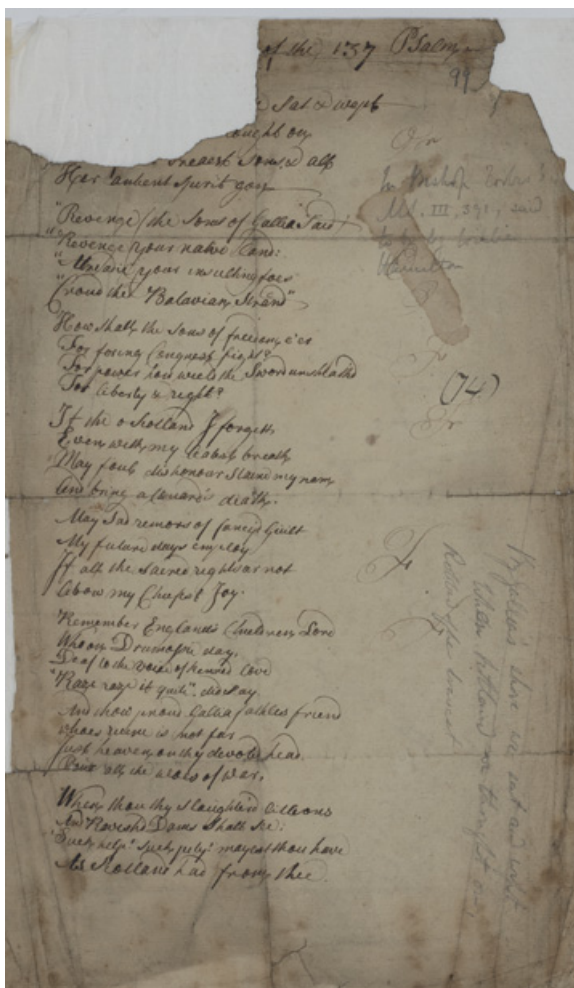 of the 137 Psalm
99
sat & wept
ought on
Her antient spirit gon
"Revenge (the sons of Gallia said
"Revenge your native Land:
your insulting foes
Croud the Batavian strand"
How shall the sons of freedom e'er
For foreign Conquest fight?
For power how wield the Sword unsheath'd
For liberty & right?
If thee o Scotland I forgett
Even with my breath
May foul dishonour staind my nam
And bring a Coward's death.
May sad remors of fancyd Guilt
My future days employ
If all thy sacred rights ar not
Above my Chiefest Joy.
Remember England's Children Lord
Who on Drumossie day,
Deaf to the voice of kindred Love
"Raze raze it quite", did say
And thow proud Gallia faithless friend
whoes ruine is not far
Just heaven on thy devoted head
Pour all the woes of war.
When thou thy slaughter'd little ons
And Ravish'd Dams shalt see:
"Such help" such pity" mayest thou have
As Scotland had from thee
In Bishop Forbes's
III, 391, said
to be by
Hamilton
(74)
By Gallia's shore we sat and wept
When Scotland we thought on